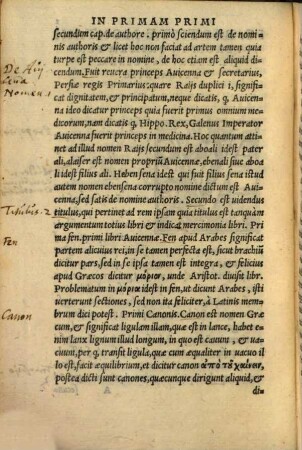 IN PRIMAM PRIMI
secundum cap. de authore. primò sciendum est de nomi-
nis authoris & licet hoc non faciat ad artem tamen quia
turpe est peccare in nomine, de hoc etiam est aliquid di-
cendum. Fuit reuera princeps Auicenna & secretarius,
Persiæ regis Primarius: quare Raijs duplici i, signifi-
cat dignitatem, & principatum, neque dicatis, q. Auicen-
na ideo dicatur princeps quia fuerit primus omnium me-
dicorum, nam dicatis q. Hippo. Rex, Galenus Imperator
Auicenna fuerit princeps in medicina. Hoc quantum atti-
net ad illud nomen Raijs secundum est aboali idest pater
ali, alaser est nomen propriū Auicenne, ebenali siue aboa
li idest filius ali. Heben sena idest qui fuit filius sena ictud
autem nomen ebensena corrupto nomine dictum est Aui-
cenna, sed satis de nomine authoris. Secundo est uidendus
titulus, qui pertinet ad rem ipsam quia titulus est tanquā
argumentum totius libri & indicat mercimonia libri. Pri
ma fen. primi libri Auicenna. Fen apud Arabes significat
partem alicuius rei, in se tamen perfectæ est, sicut brachiū
dicitur pars, sed in se ipsa tamen est integra, & felicius
apud Græcos dicitur μόριον, unde Aristot. diuisit libr.
Problematum in μόρια idest in fen, ut dicunt Arabes, isti
uerterunt sectiones, sed non ita feliciter, à Latinis mem-
brum dici potest. Primi Canonis. Canon est nomen Græ-
cum, & significat ligulam illam, quæ est in lance, habet e-
nim lanx lignum illud longum, in quo est cauum, & ua-
cium, per q. transit ligula, quæ cum æqualiter in uacuo il
lo est, facit æquilibrium, et dicitur canon ἀπὸ τοῦ χαίνειν,
postea dicti sunt canones, quæcunque dirigunt aliquid, &
di-
Nomen 1
Titulus. 2
Fen
Canon